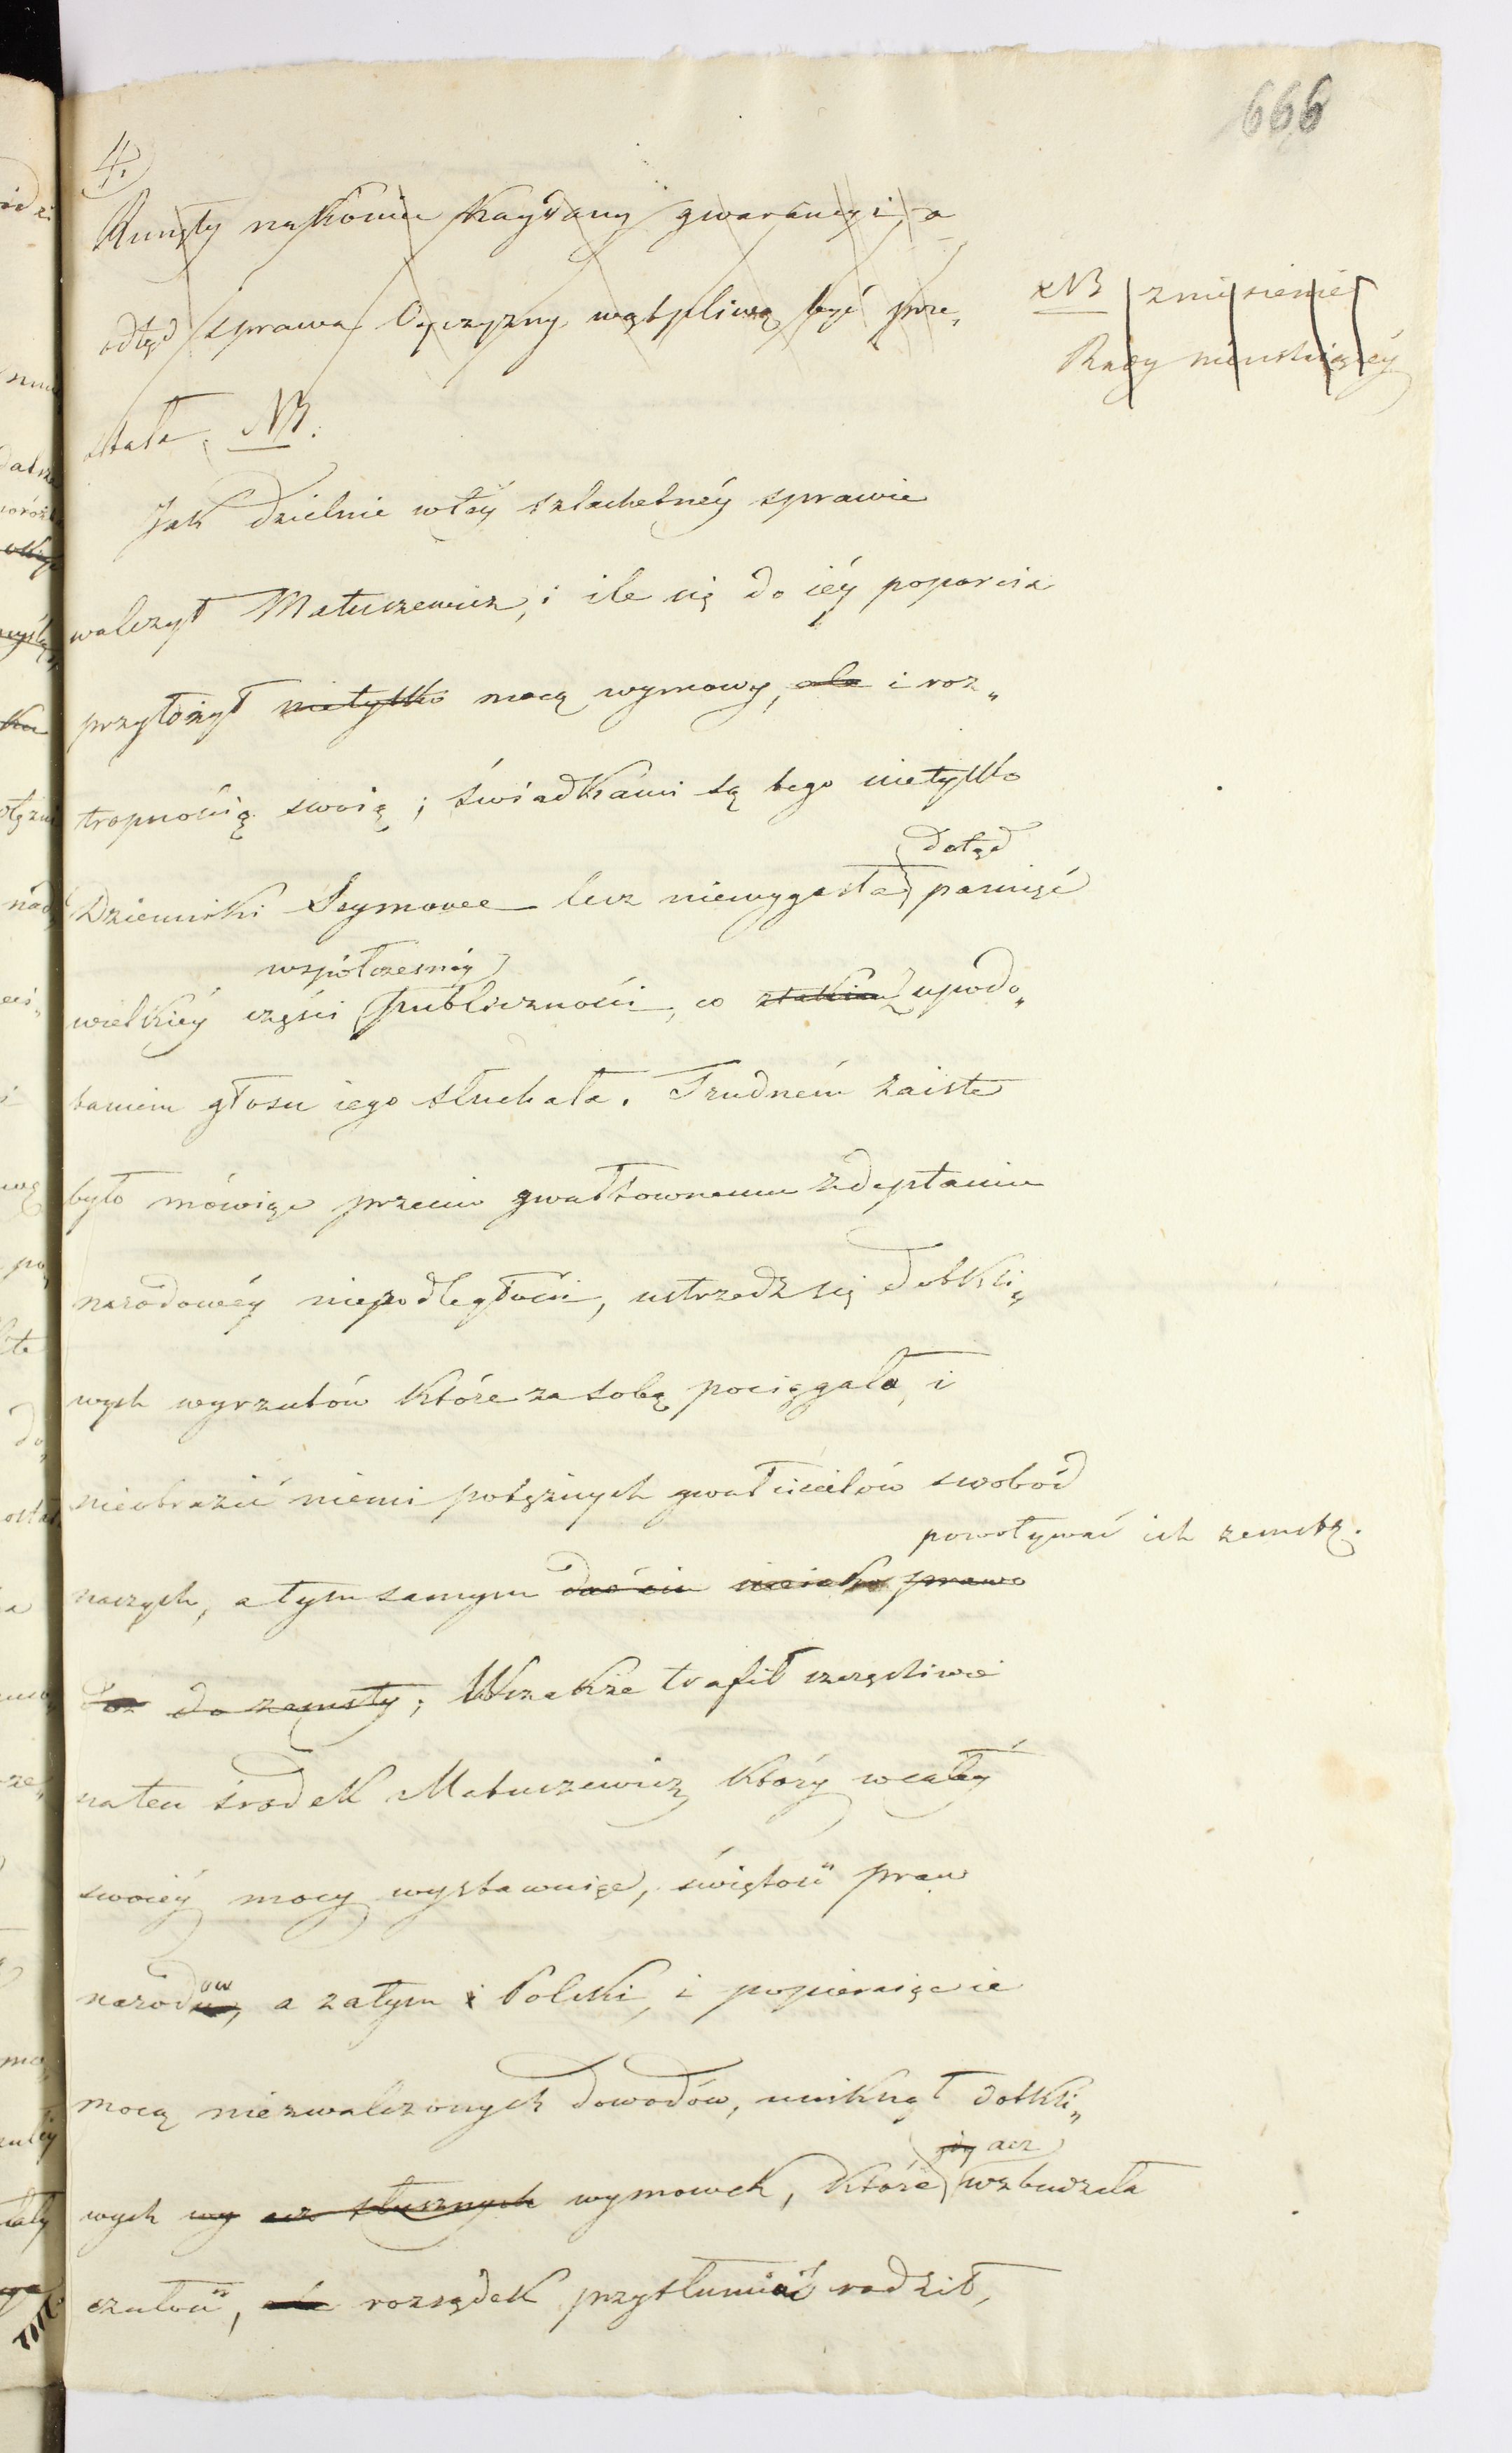 666
4.
Runęły nakoniec Kaydany gwarancyi, a
odtąd sprawa Oyczyzny wątpliwą być prze„
stała. NB.
xNB zniesienie
Rady nieustaiącéy
Jak dzielnie w téy szlachetnéy sprawie
walczył Matuszewicz, i ile się do iéy poparcia
przyłożył nietylko mocą wymowy, ale i roz„
tropnością swoią; świadkami są tego nietylko
dotąd
Dzienniki Seymowe lecz niewygasła pamięć
współczesnéy
wielkiéy części publiczności, co z takiém upodo„
baniem głosu iego słuchała. Trudném zaiste
było mówiąc przeciw gwałtownemu zdeptaniu
narodowéy niepodległości, ustrzedz się dotkli„
wych wyrzutów które za sobą pociągało, i
nieobrazić niemi potężnych gwałcicielów swobód
powoływać ich zemstę.
naszych, a tym samym dać im nieiako prawo
do zemsty; Wszakże trafił szczęśliwie
na ten środek Matuszewicz, który w całéy
swoiéy mocy wystawuiąc, świętość praw
ów
narodu, a zatym i Polski, i popieraiąc ie
mocą niezwalczonych dowodów, uniknął dotkli„
acz
wych wy acz słusznych wymówek, które wzbudzała
czułość, ale rozsądek przytłumiać radził,